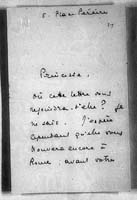 5. Place Pereire
Princesse,
Où cette lettre vous
rejoindra-t-elle ? Je
ne sais. J'espère
cependant qu'elle vous
trouvera encore à
Rome, avant votre